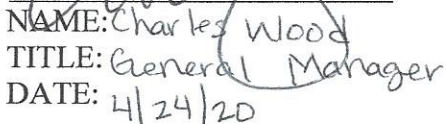 NAME: Charles Wood
TITLE: General Manager
DATE: 4/24/20